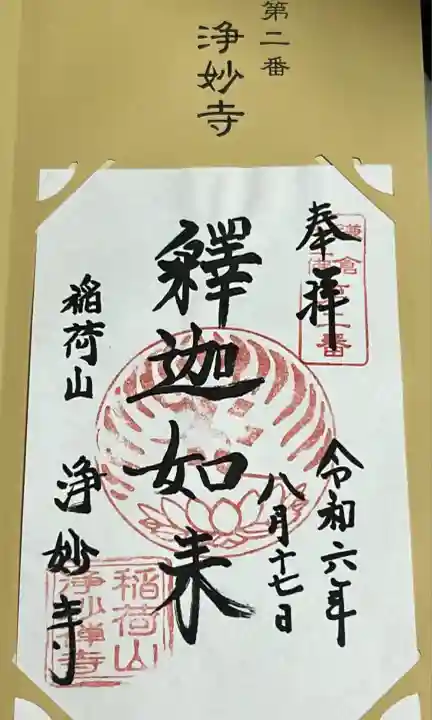 第二番
浄妙寺
奉拝
鎌倉
第二番
令和六年
八月十七日
釋迦如来
稲荷山
浄妙寺
稲荷山
浄妙禅寺